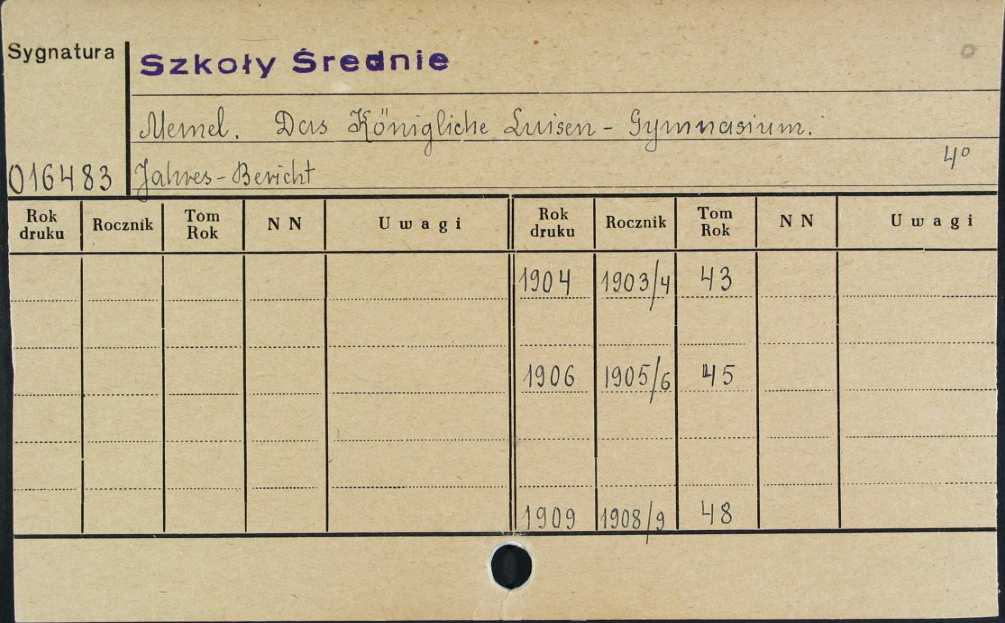 Sygnatura
Szkoły Średnie
Memel. Das Königliche Luisen-Gymnasium.
4°
016483 Jahres-Bericht
Rok druku Rocznik Tom Rok N N Uwagi Rok druku Rocznik Tom Rok N N Uwagi
1904 1903/4 43
1906 1905/6 45
1909 1908/9 48